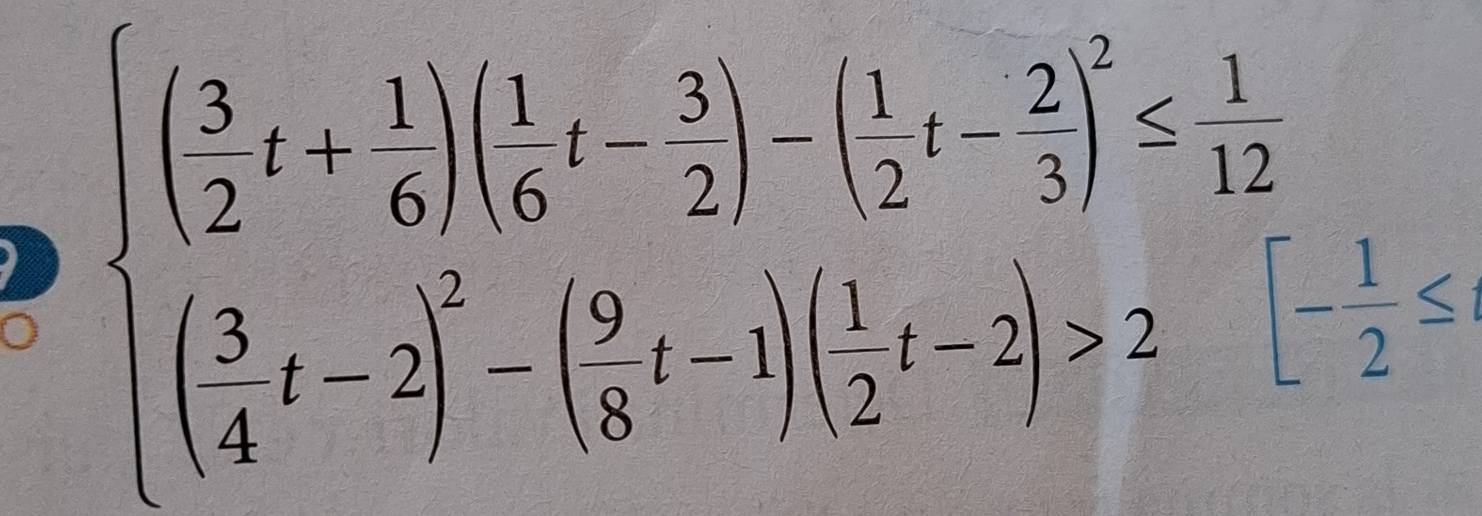 (3/2 t + 1/6)(1/6 t - 3/2) - (1/2 t - 2/3)² ≤ 1/12
(3/4 t - 2)² - (9/8 t - 1)(1/2 t - 2) > 2 [-1/2 ≤